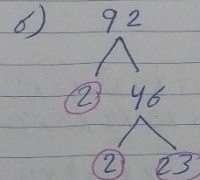 б) 92
2 46
2 23